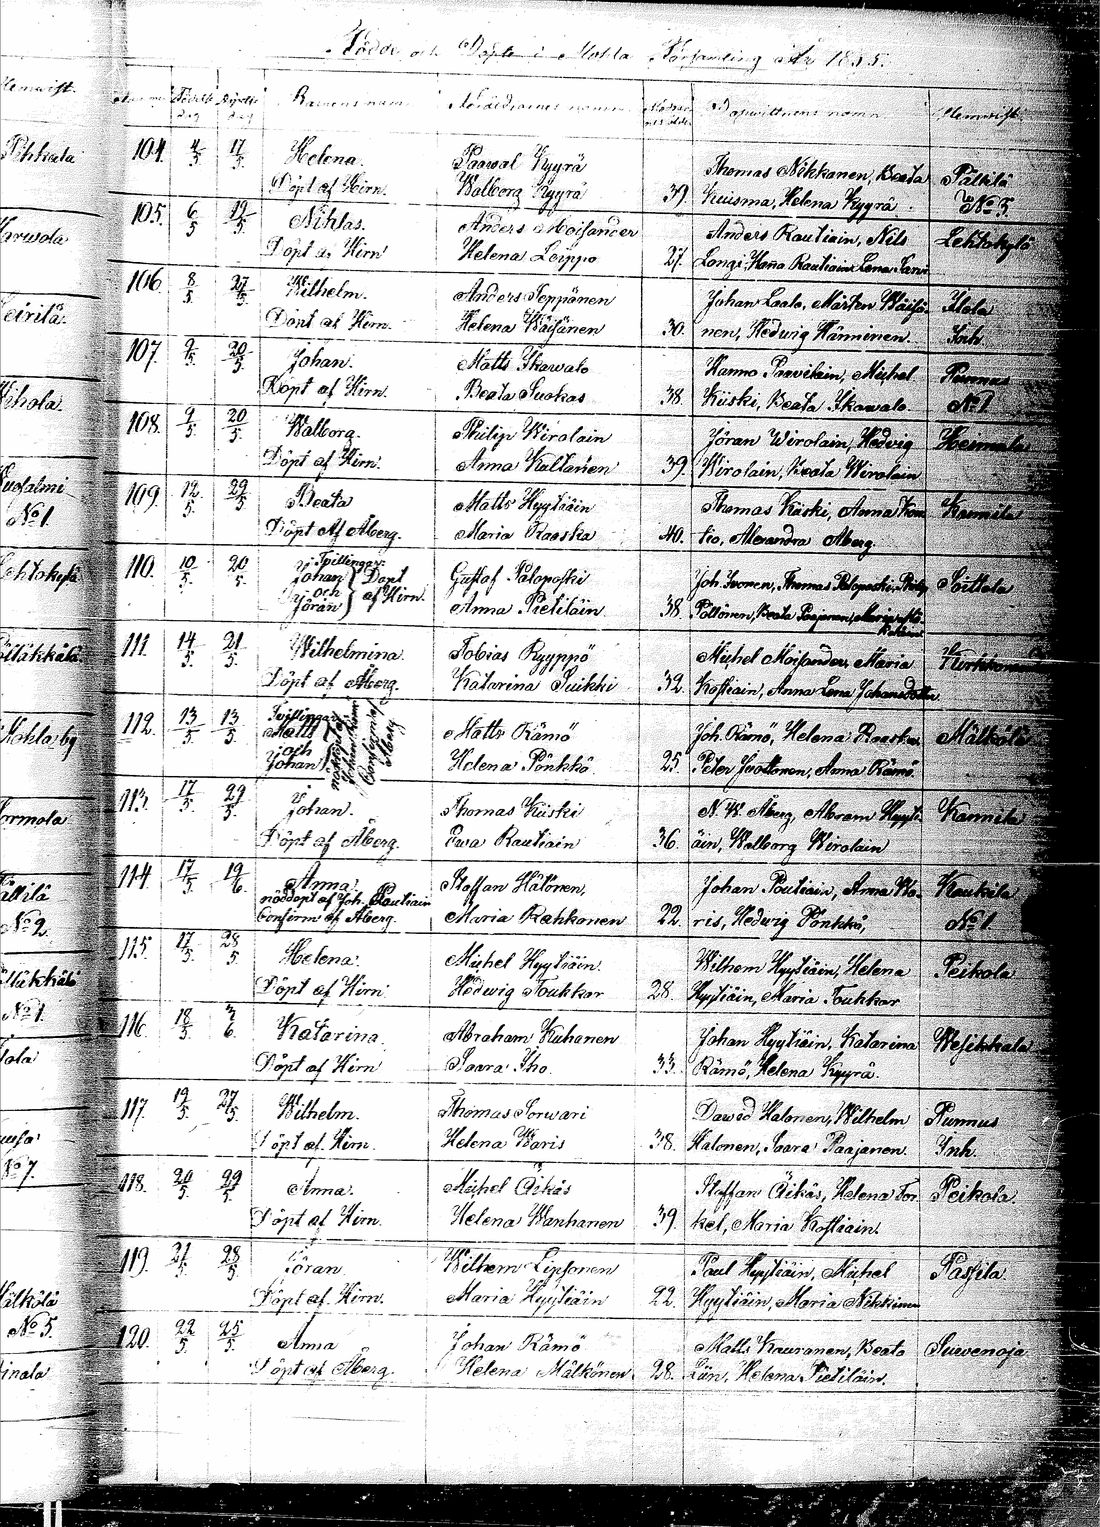 Födde och Döpte i Mohla Församling år 1855.
Hemvist.
Födelse dag
Barnens namn
Föräldrarnes namn
Dopvittnens namn
Hemvist.
104. 4/5 17/5 Helena. Paawal Kyyrä Thomas Nikkanen, Beata Pälkilä
Döpt af Hirn. Walborg Kyyrä 39. Kuisma, Helena Kyyrä No 3.
105. 6/5 19/5 Niklas. Anders Moisander Anders Rautiain, Nils Lehtokylä
Döpt af Hirn Helena Loippo 27. Longi, Hanna Rautiain, Lena
106. 8/5 27/5 Wilhelm. Anders Teppänen Johan Laalo, Mårten Wäisä- Ilola
Döpt af Hirn. Helena Wäisänen 30. nen, Hedwig Hänninen. Inh.
107. 9/5 20/5 Johan. Matts Ikawalo Hanno Michel Punnus
Döpt af Hirn. Beata Suokas 38. Kiiski, Beata Ikawalo. No 1
108. 9/5 20/5 Walborg. Philip Wirolain Jöran Wirolain, Hedvig Heimala
Döpt af Hirn. Anna Kaltanen 39. Wirolain, Beata Wirolain
109. 12/5 29/5 Beata Matts Hyytiäin Thomas Kiiski, Anna Karmila
Döpt af Åberg. Maria Raaska 40. tio, Alexandra Åberg
110. 10/5 20/5 Tvillingar: Johan och Jöran Döpt af Hirn. Gustaf Paloposki Joh. Ivonen, Thomas Paloposki, Soittola
Anna Pietiläin 38. Pöllönen, Beata Paajanen, Maria
111. 14/5 21/5 Wilhelmina. Tobias Ryyppö Michel Moisander, Maria
Döpt af Åberg. Katarina Suikki 32. Kostiain, Anna Lena Johansdotter
112. 13/5 13/5 Tvillingar Matts Rämö Joh. Rämö, Helena Raaska Mälkölä
Matts och Johan. Helena Pönkkö 25. Peter Anna Rämö.
113. 17/5 29/5 Johan. Thomas Kiiski N. W. Åberg, Abram Hyyti- Karmila
Döpt af Åberg. Ewa Rautiain 36. äin, Walborg Wirolain
114. 17/5 19/6 Anna Staffan Hälönen, Johan Poutiain, Anna Wa- Kaukila
nöddöpt af Joh. Rautiain
Confirm af Åberg. Maria Rahkonen 22. ris, Hedwig Pönkkä, No 1.
115. 17/5 28/5 Helena. Michel Hyytiäin. Wilhem Hyytiäin, Helena Peikola
Döpt af Hirn Hedwig Toukkar 28. Hyytiäin, Maria Toukkar
116. 18/5 3/6 Katarina. Abraham Kuhanen Johan Hyytiäin, Katarina Wesikkala
Döpt af Hirn Saara Iho. 33. Rämö, Helena Kyyrä.
117. 19/5 27/5 Wilhelm. Thomas Sorwari Dawid Halonen, Wilhelm Punnus
Döpt af Hirn. Helena Waris 38. Halonen, Saara Paajanen. Inh.
118. 20/5 29/5 Anna. Michel Äikäs Staffan Äikäs, Helena Tor Peikola
Döpt af Hirn. Helena Wanhanen 39. kel, Maria Kostiain.
119. 21/5 28/5 Jöran Wilhem Lipsonen Paul Hyytiäin, Michel Passila
Döpt af Hirn. Maria Hyytiäin 22. Hyytiäin, Maria Nikkinen
120. 22/5 25/5 Anna Johan Rämö Matts Kauranen, Beata Suwenoja
Döpt af Åberg. Helena Mälkönen 28. Helena Pietiläin.